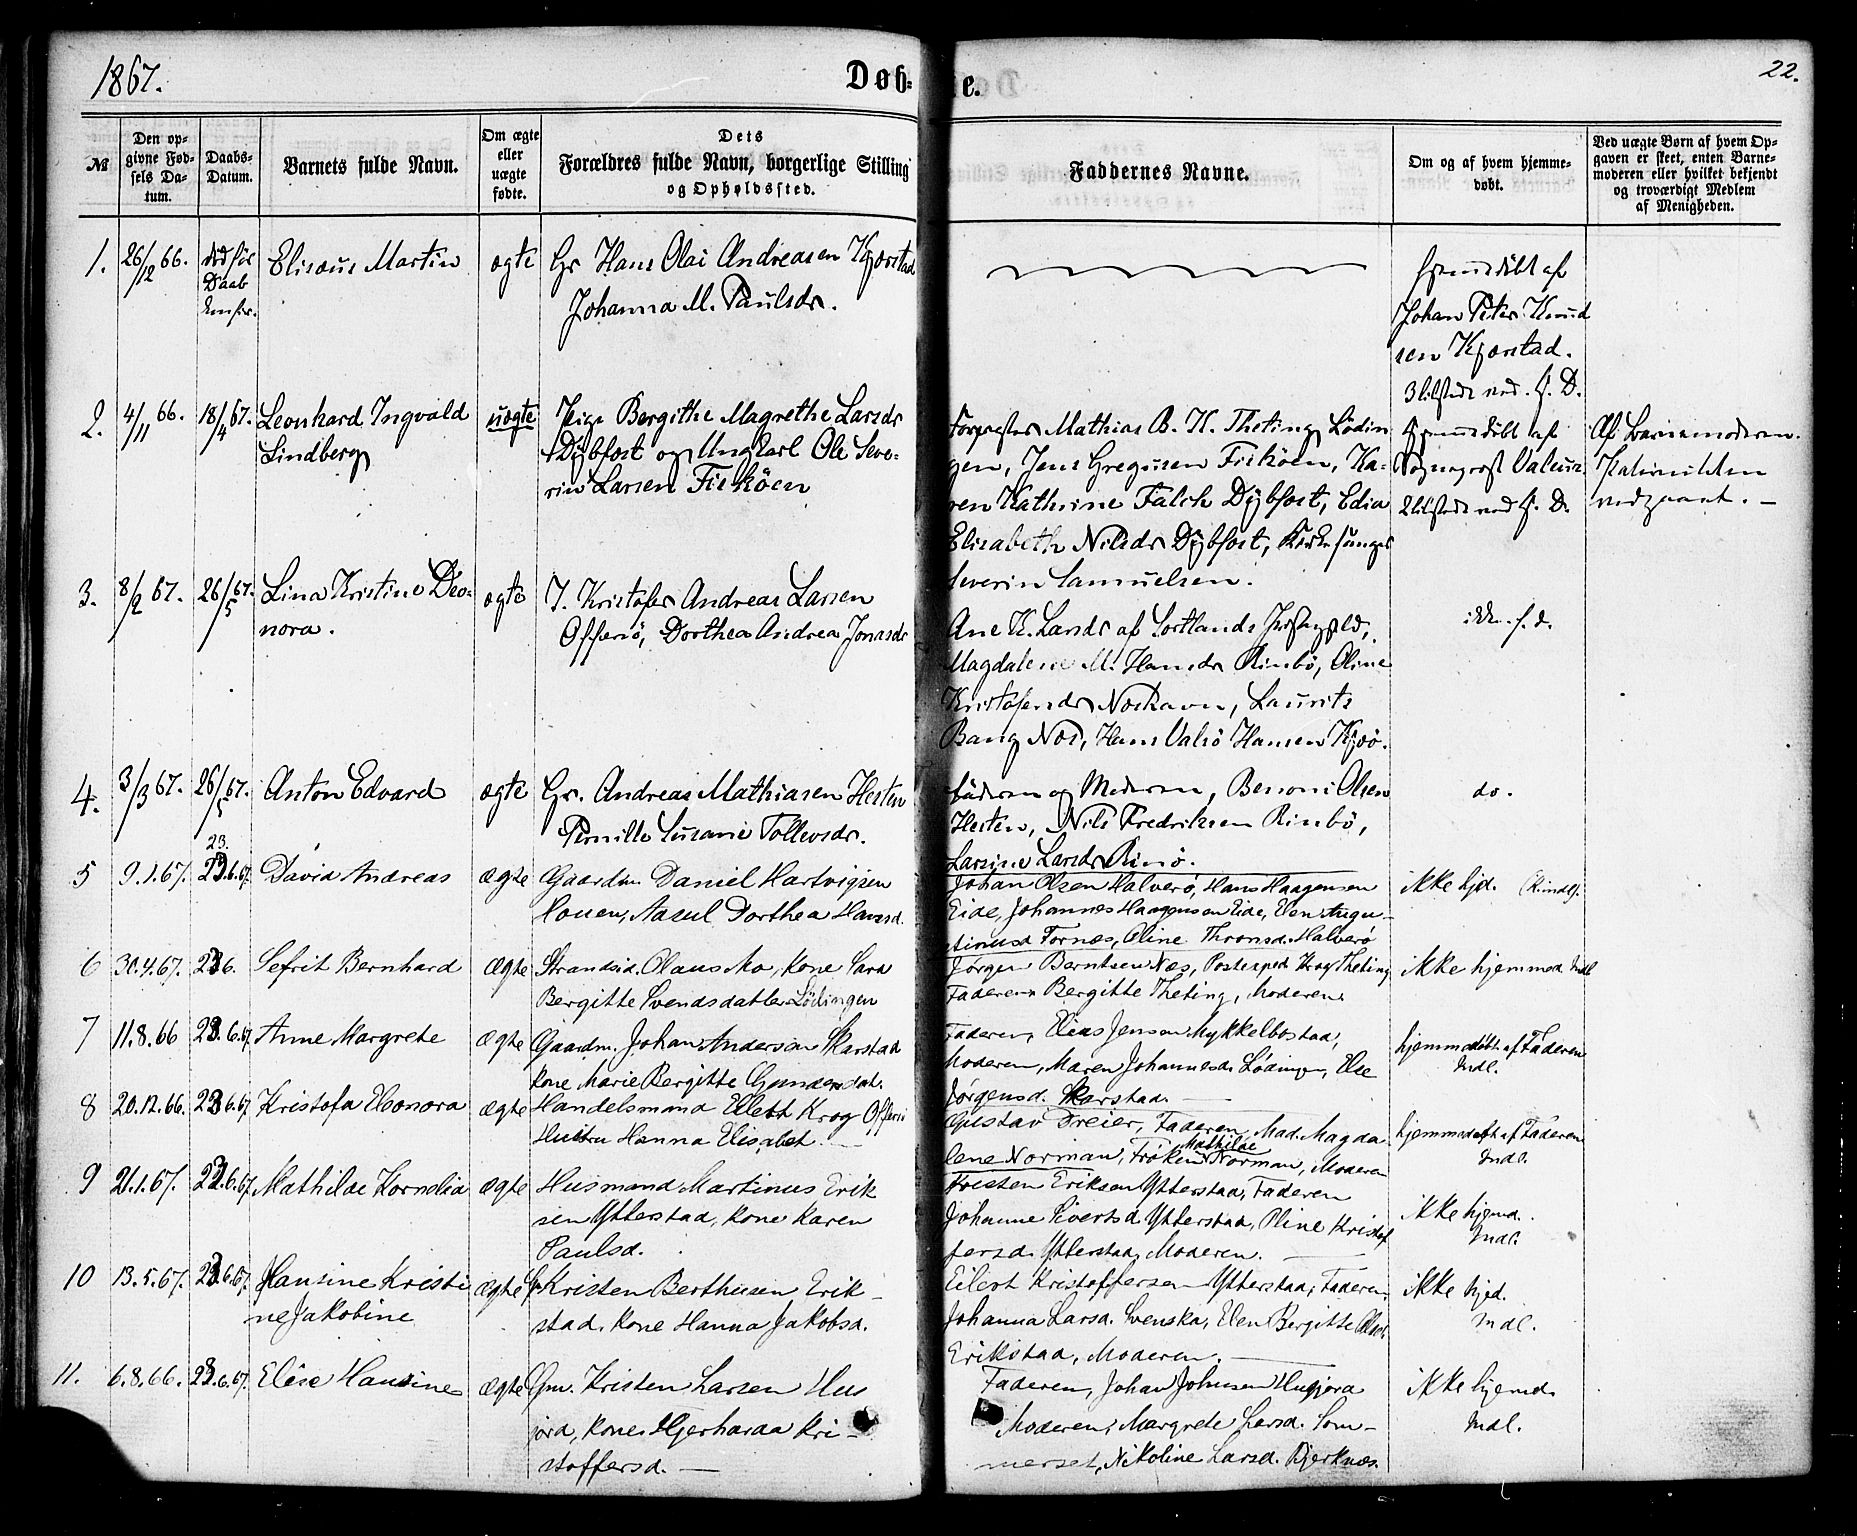 1867.
Døb-
e.
22.
№
Den op-
givne Fød-
sels Da-
tum.
Daabs-
Datum.
Barnets fulde Navn.
Om ægte
eller
uægte
fødte.
Dets
Forældres fulde Navn, borgerlige Stilling
og Opholdssted.
Faddernes Navne.
Om og af hvem hjemme-
døbt.
Ved uægte Børn af hvem Op-
gaven er skeet, enten Barne-
moderen eller hvilket bekjendt
og troværdigt Medlem
af Menigheden.
1. 26/12 66. død før Elisæus Martin ægte Gr Hans Olai Andreasen Kjærstad
Daab
Johanna M. Paulsdr.
hjemmedøbt af
Johan Peter Knud
sen Kjærstad.
3 tilstede ved H. D.
2. 4/11 66. 18/4 67. Leonhard Ingvald uægte Pige Bergithe Magrethe Larsdr
Lindberg
Dybfost og Ungkarl Ole Seve-
rin Larsen Fiskøen
Mathias B. K. Theting Lødin
gen, Jens Gregusen Fiskøen, Ka-
ren Kathrine Falch Dybfost, Edia
Elisabeth Nilsdr Dybfost, Kirkesanger
Severin Samuelsen.
hjemmedøbt af
Sogneprest
2 tilstede ved H. D.
Af Barnemoderen.
3. 8/2 67. 26/5 67. Lina Kristine Deo- ægte I. Kristofer Andreas Larsen
nora.
Offersø, Dorthea Andrea Jonasdr
Ane K. Larsdr af Sortlands
Magdalene M. Hansdr Rinbø, Oline
Kristofersdr Laurits
Bang Næs, Hans Valsø Hansen Kjeø.
ikke h. d.
4. 3/3 67. 26/5 67. Anton Edvard ægte Gr. Andreas Mathiasen Hesten
Pernille Susanne Tollevsdr.
Faderen og Moderen, Benoni Olsen
Hesten, Nils Fredriksen Rinbø,
Larsine Larsdr Rinø.
do.
23.
5 9.1.67. 23.6.67. David Andreas ægte Gaardm. Daniel Hartvigsen
Houen, Aasul Dorthea Hansd.
Johan Olsen Halverø, Hans Haagensen
Eide, Johannes Haagensen Eide, Elen Augu-
stinusd Fornæs, Oline Thronsd. Halverø
ikke hjd.
6 30.4.67. 23 6. Sefrit Bernhard ægte Strandsid. Olaus Mo, Kone Sara
Bergitte Svendsdatter Lødingen
Jørgen Berntsen Næs, Postexped. Krog Theting
Faderen, Bergitte Theting, Moderen.
ikke hjemmed. Indl
7 11.8.66 23.6.67 Anne Margrete ægte Gaardm. Johan Anderson Skarstad
Kone Marie Bergitte Gundersdat.
Faderen, Elias Jensen Mykkelbostad,
Moderen, Maren Johannesd. Lødingen, Else
Jørgensd. Skarstad.
hjemmedøbt af Faderen
Indl.
8 20.12.66. 23 6.67 Kristofa Eleonora ægte Handelsmand Eilert Krog Offersø
Hustru Hanna Elisabet.
Gustav Dreier, Faderen, Mad. Magda
Mathilde
lene Norman, Frøken Norman, Moderen
hjemmedøbt af Faderen
Indl.
9 21.1.67. 23.6.67 Mathilde Kornelia ægte Husmand Martinus Erik
sen Ytterstad, Kone Karen
Paulsd.
Tresten Eriksen Ytterstad, Faderen
Johanne Sivertsd Ytterstad, Oline Kristof
fersd. Ytterstad, Moderen.
ikke hjemd.
Indl.
10 13.5.67. 23.6.67. Hansine Kristi ægte Kristen Berthusen Erik-
ne Jakobine
stad. Kone Hanna Jakobsd.
Eilert Kristoffersen Ytterstad, Faderen,
Johanna Larsd. Svenska, Elen Bergitte Olsd.
Erikstad, Moderen.
ikke hjed.
Indl.
11. 6.8.66. 23.6.67. Elise Hansine ægte Gm. Kristen Larsen Hus
jord, Kone Gjerharda Kri-
stoffersd.
Faderen, Johan Johnsen Husjord
Moderen, Margrete Larsd. Som-
merset, Nikoline Larsd. Bjerknæs.
ikke hjemd.
Indl.